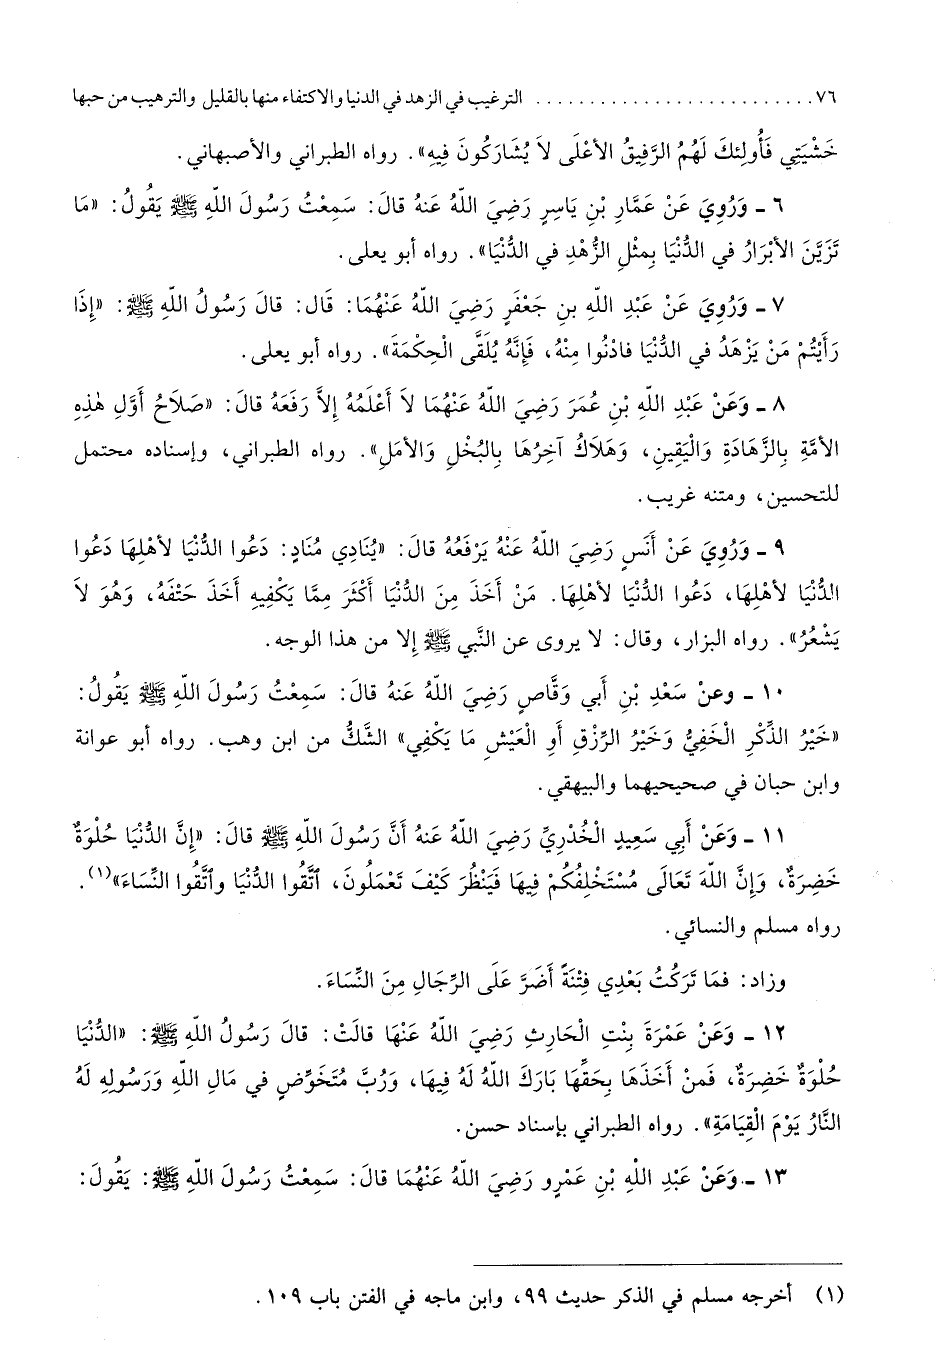 ٧٦ . . . . . . . . . . . . . . . . . . . . . . . . . الترغيب في الزهد في الدنيا والاكتفاء منها بالقليل والترهيب من حبها
خَشْيَتِي فَأُولئِكَ لَهُمُ الرَّفِيقُ الأَعْلَى لاَ يُشَارَكُونَ فِيهِ». رواه الطبراني والأصبهاني.
٦ - وَرُوِيَ عَنْ عَمَّارِ بْنِ يَاسِرٍ رَضِيَ اللّهُ عَنهُ قالَ: سَمِعْتُ رَسُولَ اللّهِ ﷺ يَقُولُ: «مَا
تَزَيَّنَ الأَبْرَارُ في الدُّنْيَا بِمِثْلِ الزُّهْدِ في الدُّنْيَا». رواه أبو يعلى.
٧ - وَرُوِيَ عَنْ عَبْدِ اللّهِ بنِ جَعْفَرٍ رَضِيَ اللّهُ عَنْهُمَا: قَالَ: قالَ رَسُولُ اللّهِ ﷺ: «إِذَا
رَأَيْتُمْ مَنْ يَزْهَدُ في الدُّنْيَا فادْنُوا مِنْهُ، فَإِنَّهُ يُلَقَّى الْحِكْمَةَ». رواه أبو يعلى.
٨ - وَعَنْ عَبْدِ اللّهِ بْنِ عُمَرَ رَضِيَ اللّهُ عَنْهُمَا لاَ أَعْلَمُهُ إِلاَّ رَفَعَهُ قالَ: «صَلاَحُ أَوَّلِ هٰذِهِ
الأُمَّةِ بِالزَّهَادَةِ وَالْيَقِينِ، وَهَلاَكُ آخِرُهَا بِالبُخْلِ وَالأَمَلِ». رواه الطبراني، وإسناده محتمل
للتحسين، ومتنه غريب.
٩ - وَرُوِيَ عَنْ أَنَسٍ رَضِيَ اللّهُ عَنْهُ يَرْفَعُهُ قالَ: «يُنَادِي مُنَادٍ: دَعُوا الدُّنْيَا لأَهْلِهَا دَعُوا
الدُّنْيَا لأَهْلِهَا، دَعُوا الدُّنْيَا لأَهْلِهَا. مَنْ أَخَذَ مِنَ الدُّنْيَا أَكْثَرَ مِمَّا يَكْفِيهِ أَخَذَ حَتْفَهُ، وَهُوَ لاَ
يَشْعُرُ». رواه البزار، وقال: لا يروى عن النَّبي ﷺ إلا من هذا الوجه.
١٠ - وعنْ سَعْدِ بْنِ أَبي وَقَّاصٍ رَضِيَ اللّهُ عَنهُ قالَ: سَمِعْتُ رَسُولَ اللّهِ ﷺ يَقُولُ:
«خَيْرُ الذِّكْرِ الْخَفِيُّ وَخَيْرُ الرِّزْقِ أَوِ الْعَيْشِ مَا يَكْفِي» الشَّكُّ من ابن وهب. رواه أبو عوانة
وابن حبان في صحيحيهما والبيهقي.
١١ - وَعَنْ أَبِي سَعِيدٍ الْخُدْرِيِّ رَضِيَ اللّهُ عَنهُ أَنَّ رَسُولَ اللّهِ ﷺ قالَ: «إِنَّ الدُّنْيَا حُلْوَةٌ
خَضِرَةٌ، وَإِنَّ اللّهَ تَعَالَى مُسْتَخْلِفُكُمْ فِيهَا فَيَنْظُرَ كَيْفَ تَعْمَلُونَ، ٱتَّقُوا الدُّنْيَا وٱتَّقُوا النِّسَاءَ»(١).
رواه مسلم والنسائي.
وزاد: فمَا تَرَكْتُ بَعْدِي فِتْنَةً أَضَرَّ عَلَى الرِّجَالِ مِنَ النِّسَاءَ.
١٢ - وَعَنْ عَمْرَةَ بِنْتِ الْحَارِثِ رَضِيَ اللّهُ عَنْهَا قالَتْ: قالَ رَسُولُ اللّهِ ﷺ: «الدُّنْيَا
حُلْوَةٌ خَضِرَةٌ، فَمنْ أَخَذَهَا بِحَقِّهَا بَارَكَ اللّهُ لَهُ فِيهَا، وَرُبَّ مُتَخَوِّضٍ في مَالِ اللّهِ وَرَسُولِهِ لَهُ
النَّارُ يَوْمَ الْقِيَامَةِ». رواه الطبراني بإسناد حسن.
١٣ - وَعَنْ عَبْدِ اللّهِ بْنِ عَمْرٍو رَضِيَ اللّهُ عَنْهُمَا قالَ: سَمِعْتُ رَسُولَ اللّهِ ﷺ: يَقُولَ:
(١) أخرجه مسلم في الذكر حديث ٩٩، وابن ماجه في الفتن باب ١٠٩.